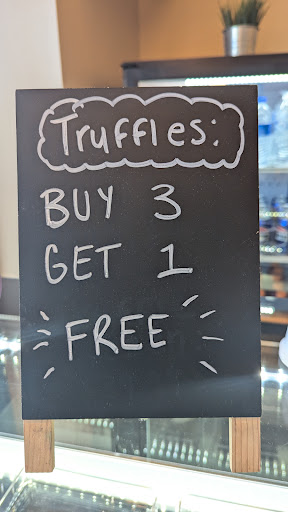 Truffles:
BUY 3
GET 1
FREE